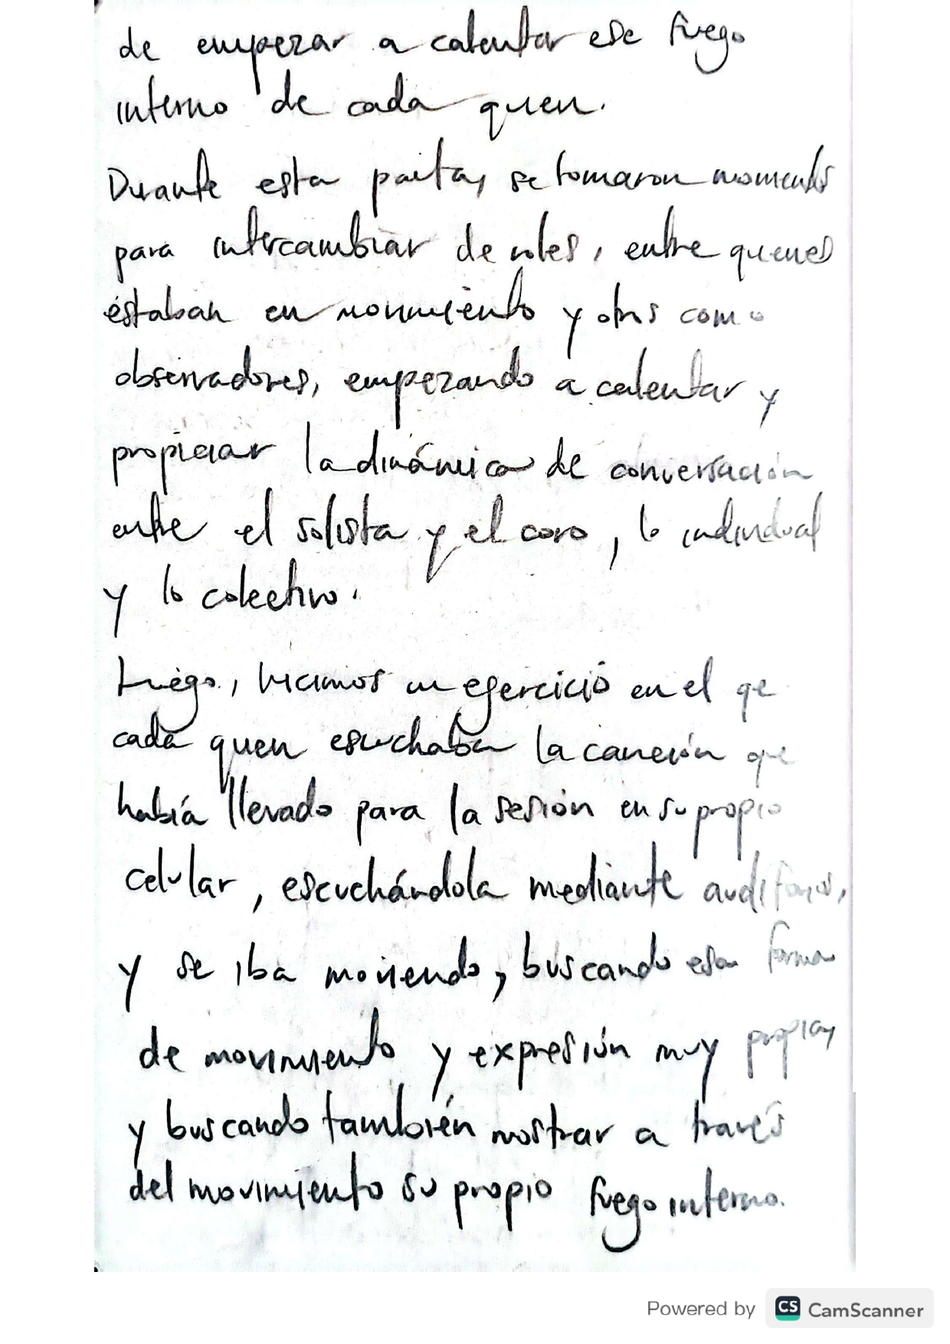 de empezar a calentar ese fuego
interno de cada quen.
Durante esta parte, se tomaron momentos
para intercambiar de roles, entre quenes
estaban en movimiento y otrs como
observadores, empezando a calentar y
propiciar la dinámica de conversación
entre el solista y el coro, lo individual
y lo colectivo.
Luego, hicimos un ejercicio en el qe
cada quen escuchaba la canción que
había llevado para la sesión en su propio
celular, escuchándola mediante audífonos,
y se iba moviendo, buscando esa forma
de movimiento y expresión muy propia,
y buscando también mostrar a través
del movimiento su propio fuego interno.
Powered by CS CamScanner